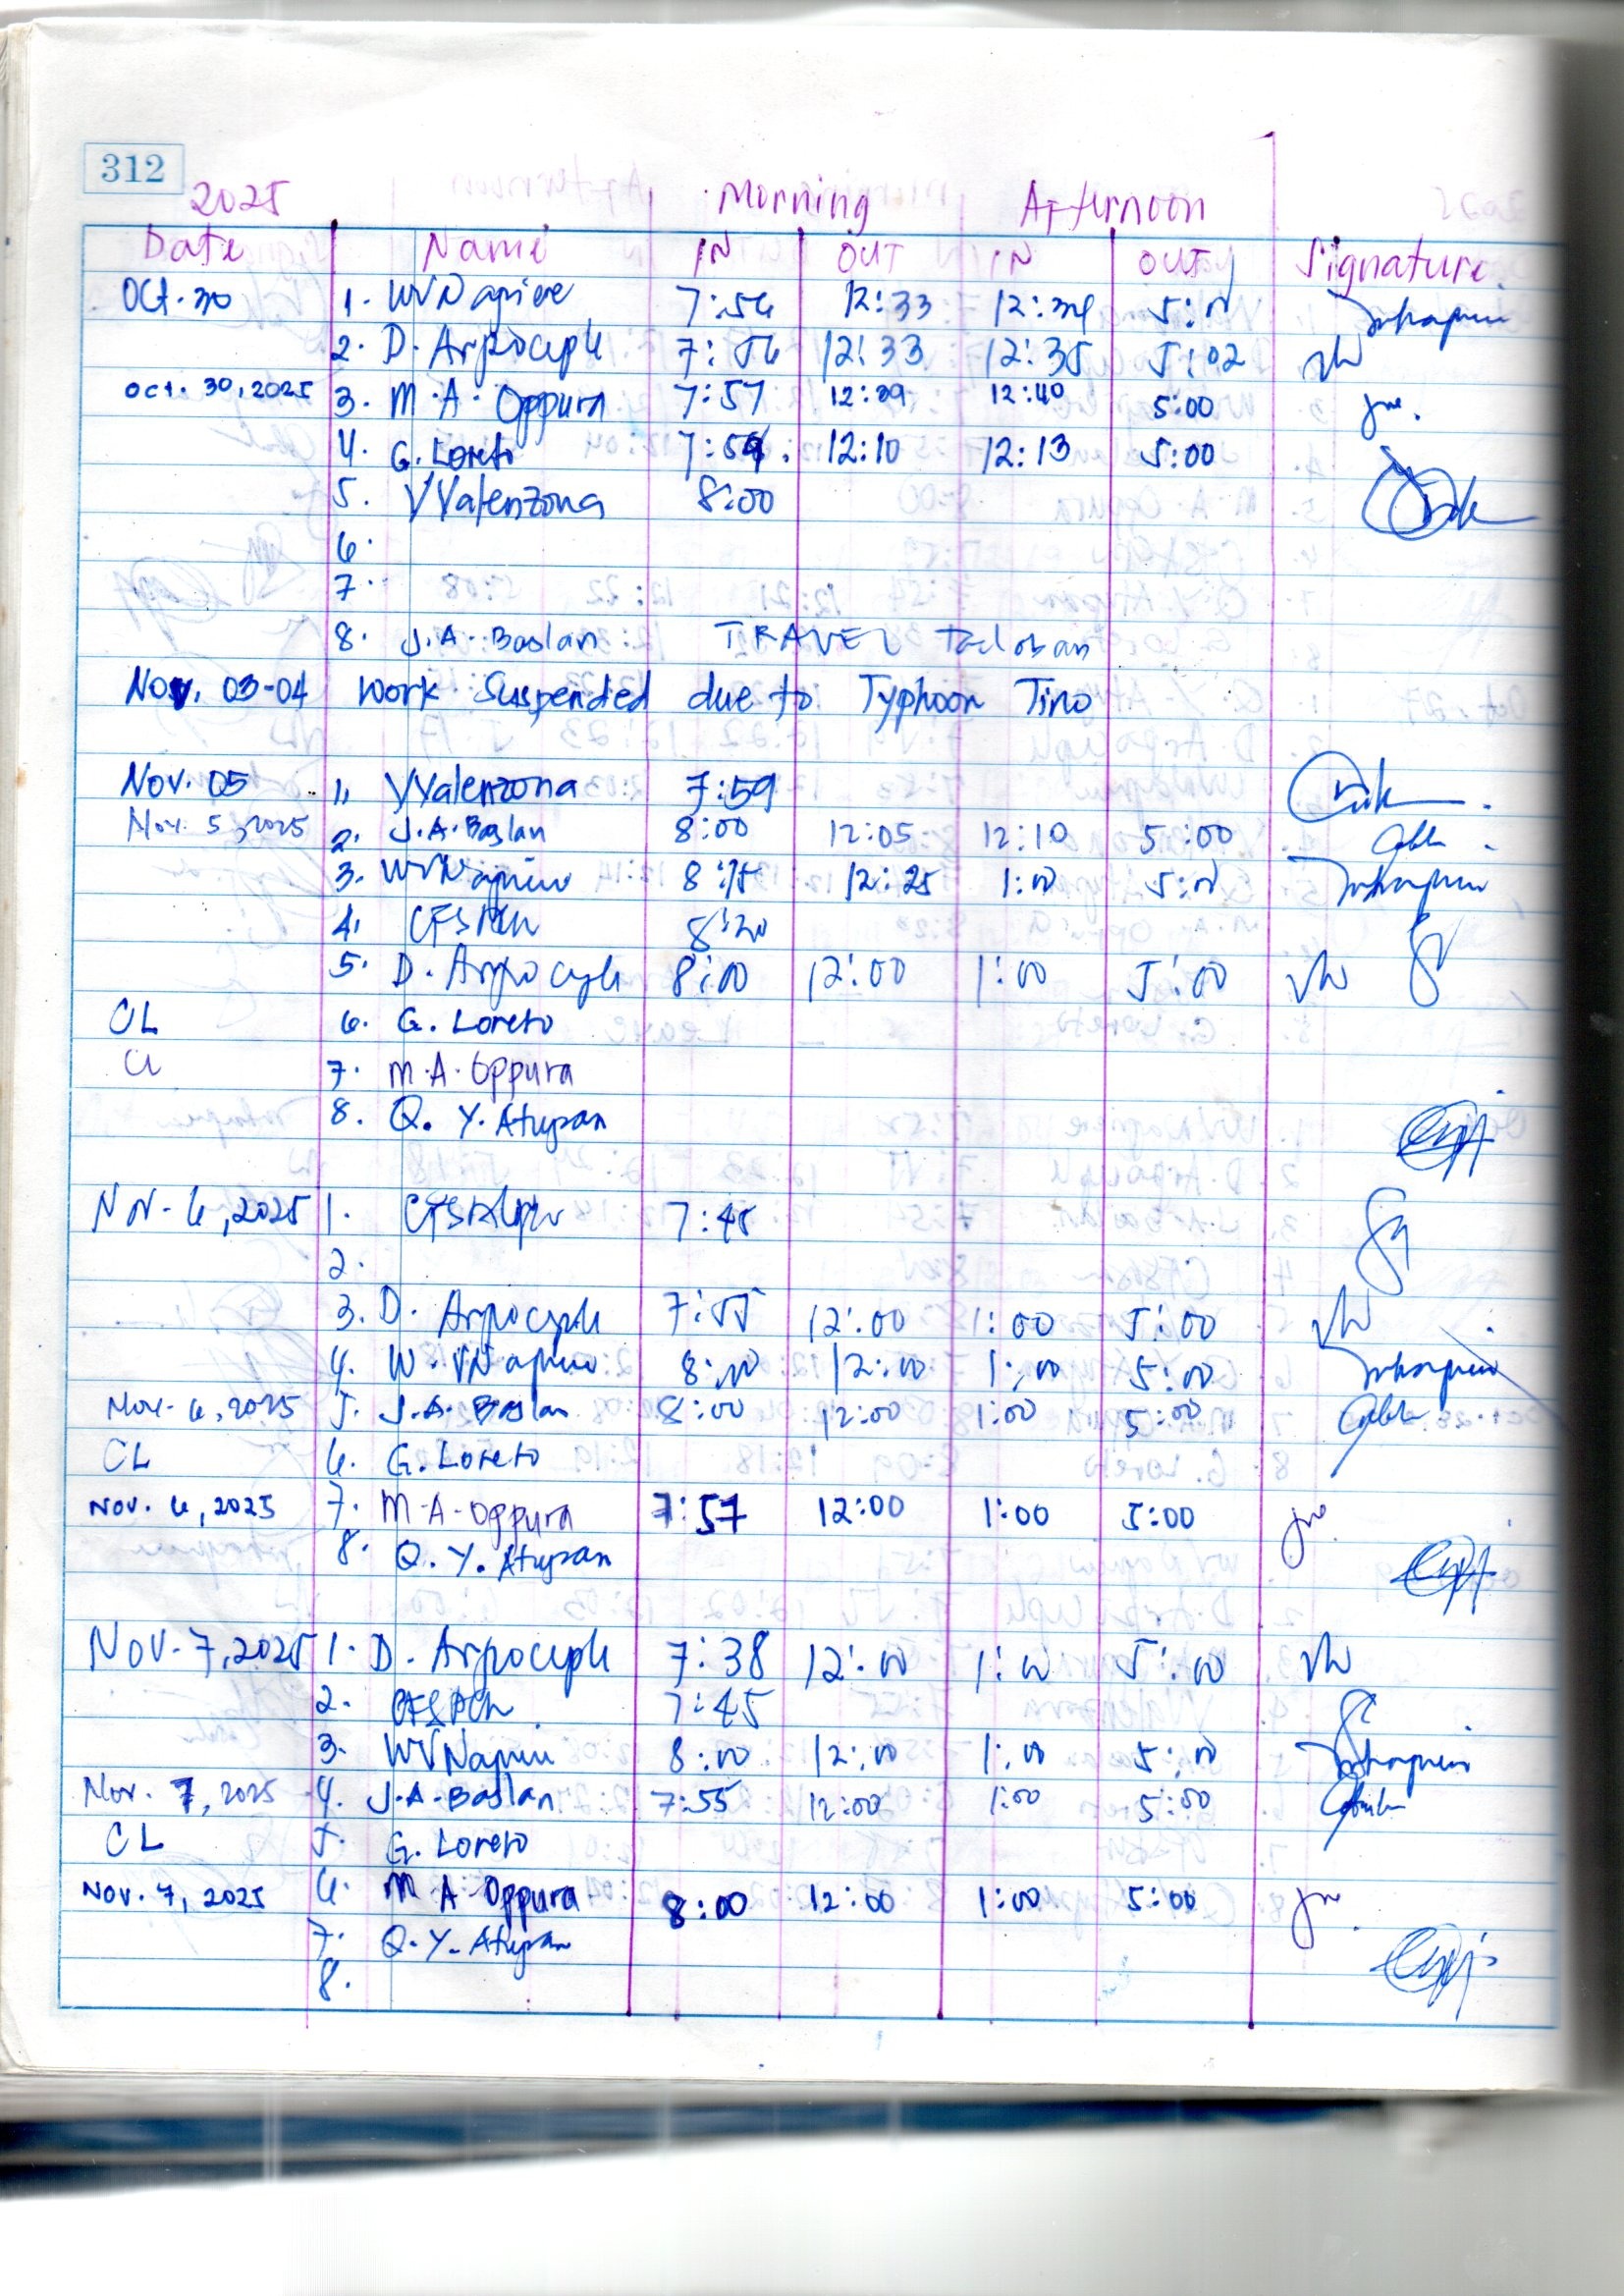 312
2025 Morning Afternoon
Date Name IN OUT IN OUT Signature
Oct. 30 1. WVNapiere 7:56 12:33 12:34 5:00
2. D. 7:56 12:33 12:35 5:02
Oct. 30, 2025 3. M.A. Oppura 7:57 12:39 12:40 5:00
4. G. Loreto 7:59 12:10 12:13 5:00
5. VValenzona 8:00
6.
7.
8. J.A. Baslan TRAVEL Tacloban
Nov. 03-04 Work Suspended due to Typhoon Tino
Nov. 05 1. VValenzona 7:59
Nov. 5, 2025 2. J.A. Baslan 8:00 12:05 12:10 5:00
3. 8:15 12:25 1:00 5:00
4. 8:20
5. D. 8:00 12:00 1:00 5:00
CL 6. G. Loreto
CL 7. M.A. Oppura
8. Q. Y. Atupan
Nov. 6, 2025 1. 7:45
2.
3. D. 7:55 12:00 1:00 5:00
4. 8:00 12:00 1:00 5:00
Nov. 6, 2025 5. J.A. Baslan 8:00 12:00 1:00 5:00
CL 6. G. Loreto
Nov. 6, 2025 7. M.A. Oppura 7:57 12:00 1:00 5:00
8. Q. Y. Atupan
Nov. 7, 2025 1. D. 7:38 12:00 1:00 5:00
2. 7:45
3. 8:00 12:00 1:00 5:00
Nov. 7, 2025 4. J.A. Baslan 7:55 12:00 1:00 5:00
CL 5. G. Loreto
Nov. 7, 2025 6. M A Oppura 8:00 12:00 1:00 5:00
7. Q. Y. Atupan
8.